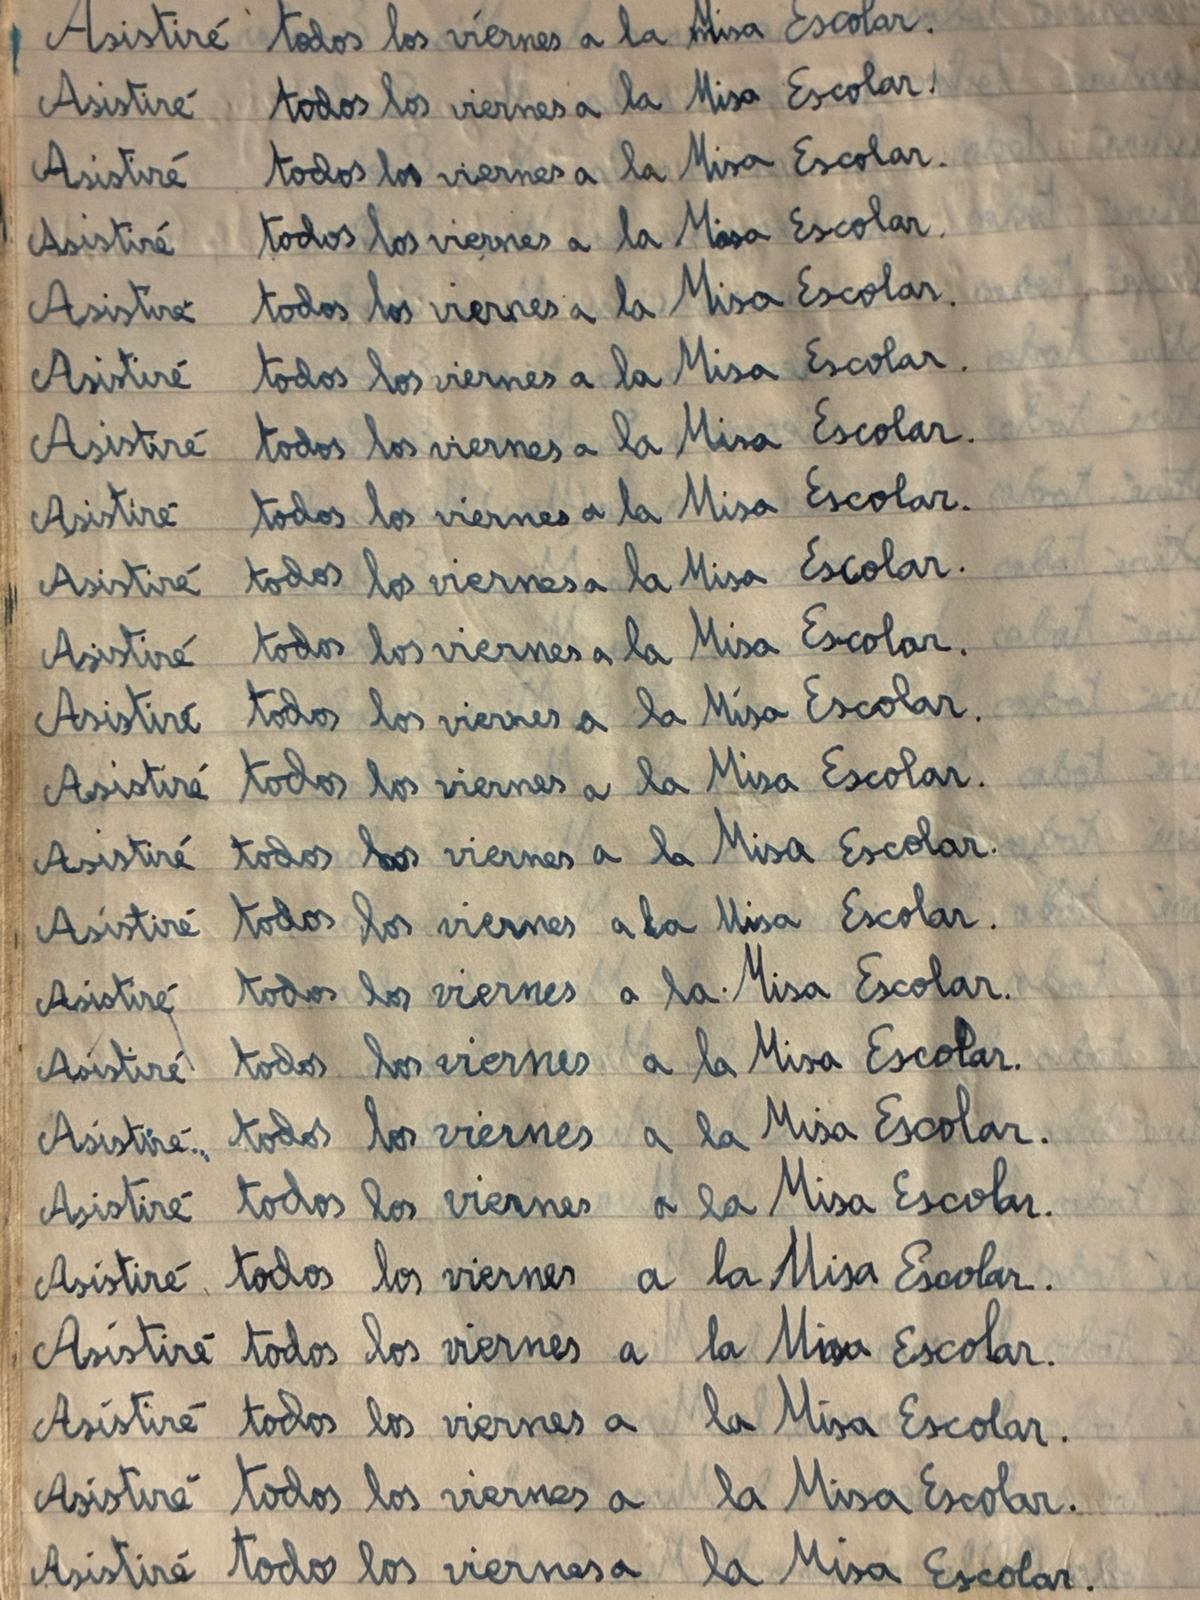 Asistiré todos los viernes a la Misa Escolar.
Asistiré todos los viernes a la Misa Escolar.
Asistiré todos los viernes a la Misa Escolar.
Asistiré todos los viernes a la Misa Escolar.
Asistiré todos los viernes a la Misa Escolar.
Asistiré todos los viernes a la Misa Escolar.
Asistiré todos los viernes a la Misa Escolar.
Asistiré todos los viernes a la Misa Escolar.
Asistiré todos los viernes a la Misa Escolar.
Asistiré todos los viernes a la Misa Escolar.
Asistiré todos los viernes a la Misa Escolar.
Asistiré todos los viernes a la Misa Escolar.
Asistiré todos los viernes a la Misa Escolar.
Asistiré todos los viernes a la Misa Escolar.
Asistiré todos los viernes a la Misa Escolar.
Asistiré todos los viernes a la Misa Escolar.
Asistiré todos los viernes a la Misa Escolar.
Asistiré todos los viernes a la Misa Escolar.
Asistiré todos los viernes a la Misa Escolar.
Asistiré todos los viernes a la Misa Escolar.
Asistiré todos los viernes a la Misa Escolar.
Asistiré todos los viernes a la Misa Escolar.
Asistiré todos los viernes a la Misa Escolar.